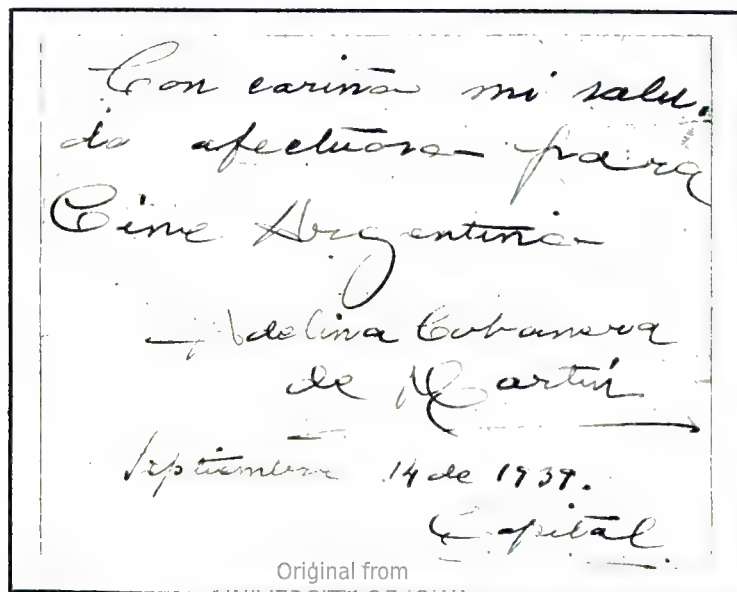 Con cariño mi salu-
do afectuoso para
Cine Argentino
Adelina Cobanera
de Martín
Septiembre 14 de 1939.
Capital
Original from
UNIVERSITY OF IOWA